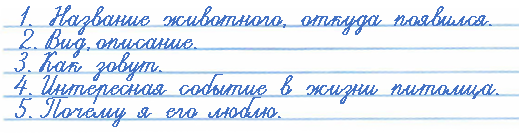 1. Название животного, откуда появился.
2. Вид, описание.
3. Как зовут.
4. Интересная событие в жизни питомца.
5. Почему я его люблю.